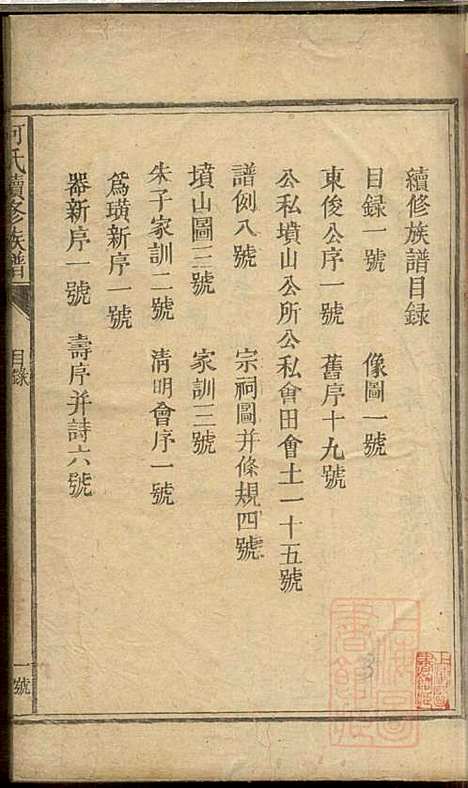 續修族譜目録
目録一號　像圖一號
東俊公序一號　舊序十九號
公私墳山公所公私會田會土一十五號
譜例八號　宗祠圖并條規四號
墳山圖三號　家訓三號
朱子家訓二號　清明會序一號
爲璜新序一號
器新序一號　壽序并詩六號
何氏續修族譜
目錄
一號
上海圖書館藏
上海圖書館藏
3